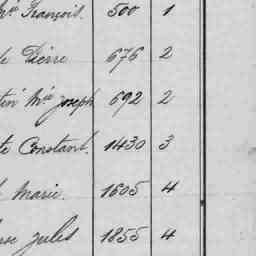 François. 500 1
Pierre 676 2
Mie Joseph 692 2
Constant. 1430 3
Marie. 1605 4
Jules 1855 4